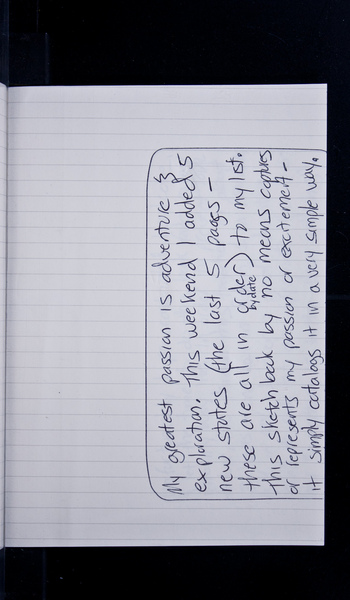 My greatest passion is adventure &
exploration. This weekend I added 5
new states (the last 5 pages –
these are all in order) to my list.
by date
This sketchbook by no means captures
or represents my passion or excitement –
it simply catalogs it in a very simple way.